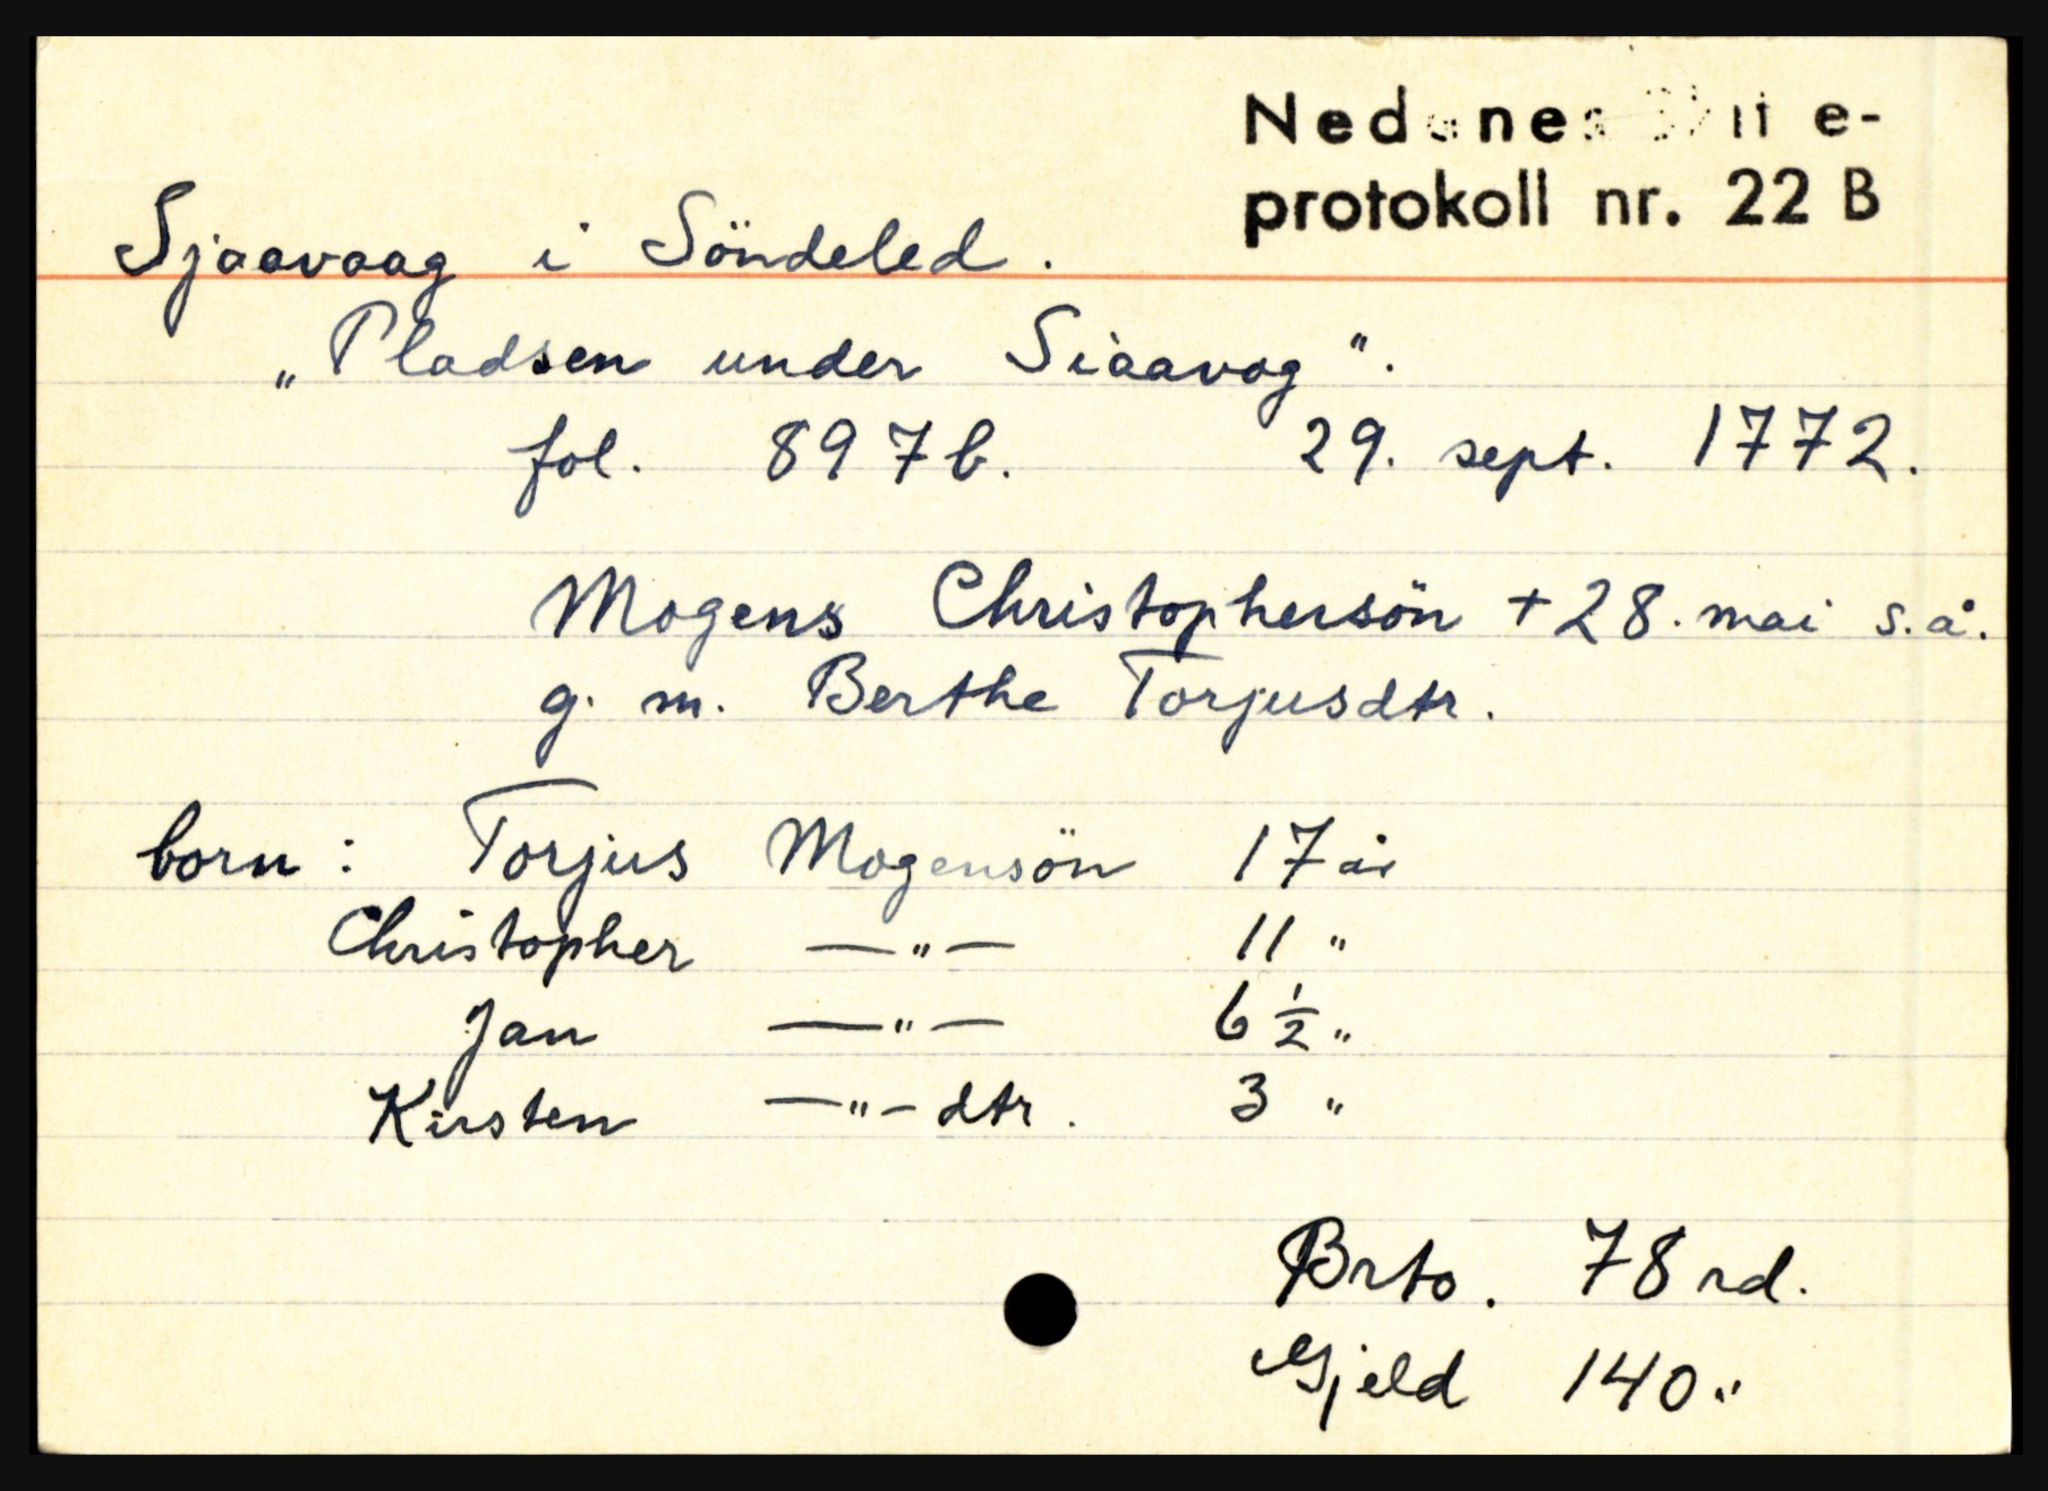 Nedenes e-
protokoll nr. 22 B
Sjaavaag i Söndeled.
„Pladsen under Siaavog".
fol. 897b. 29. sept. 1772.
Mogens Christophersön +28. mai s.å.
g. m. Berthe Torjusdtr.
born: Torjus Mogensön 17 år
Christopher —"— 11 "
Jan —"— 6 1/2 "
Kirsten —"— dtr. 3 "
Brto. 78 rd.
Gjeld 140 "